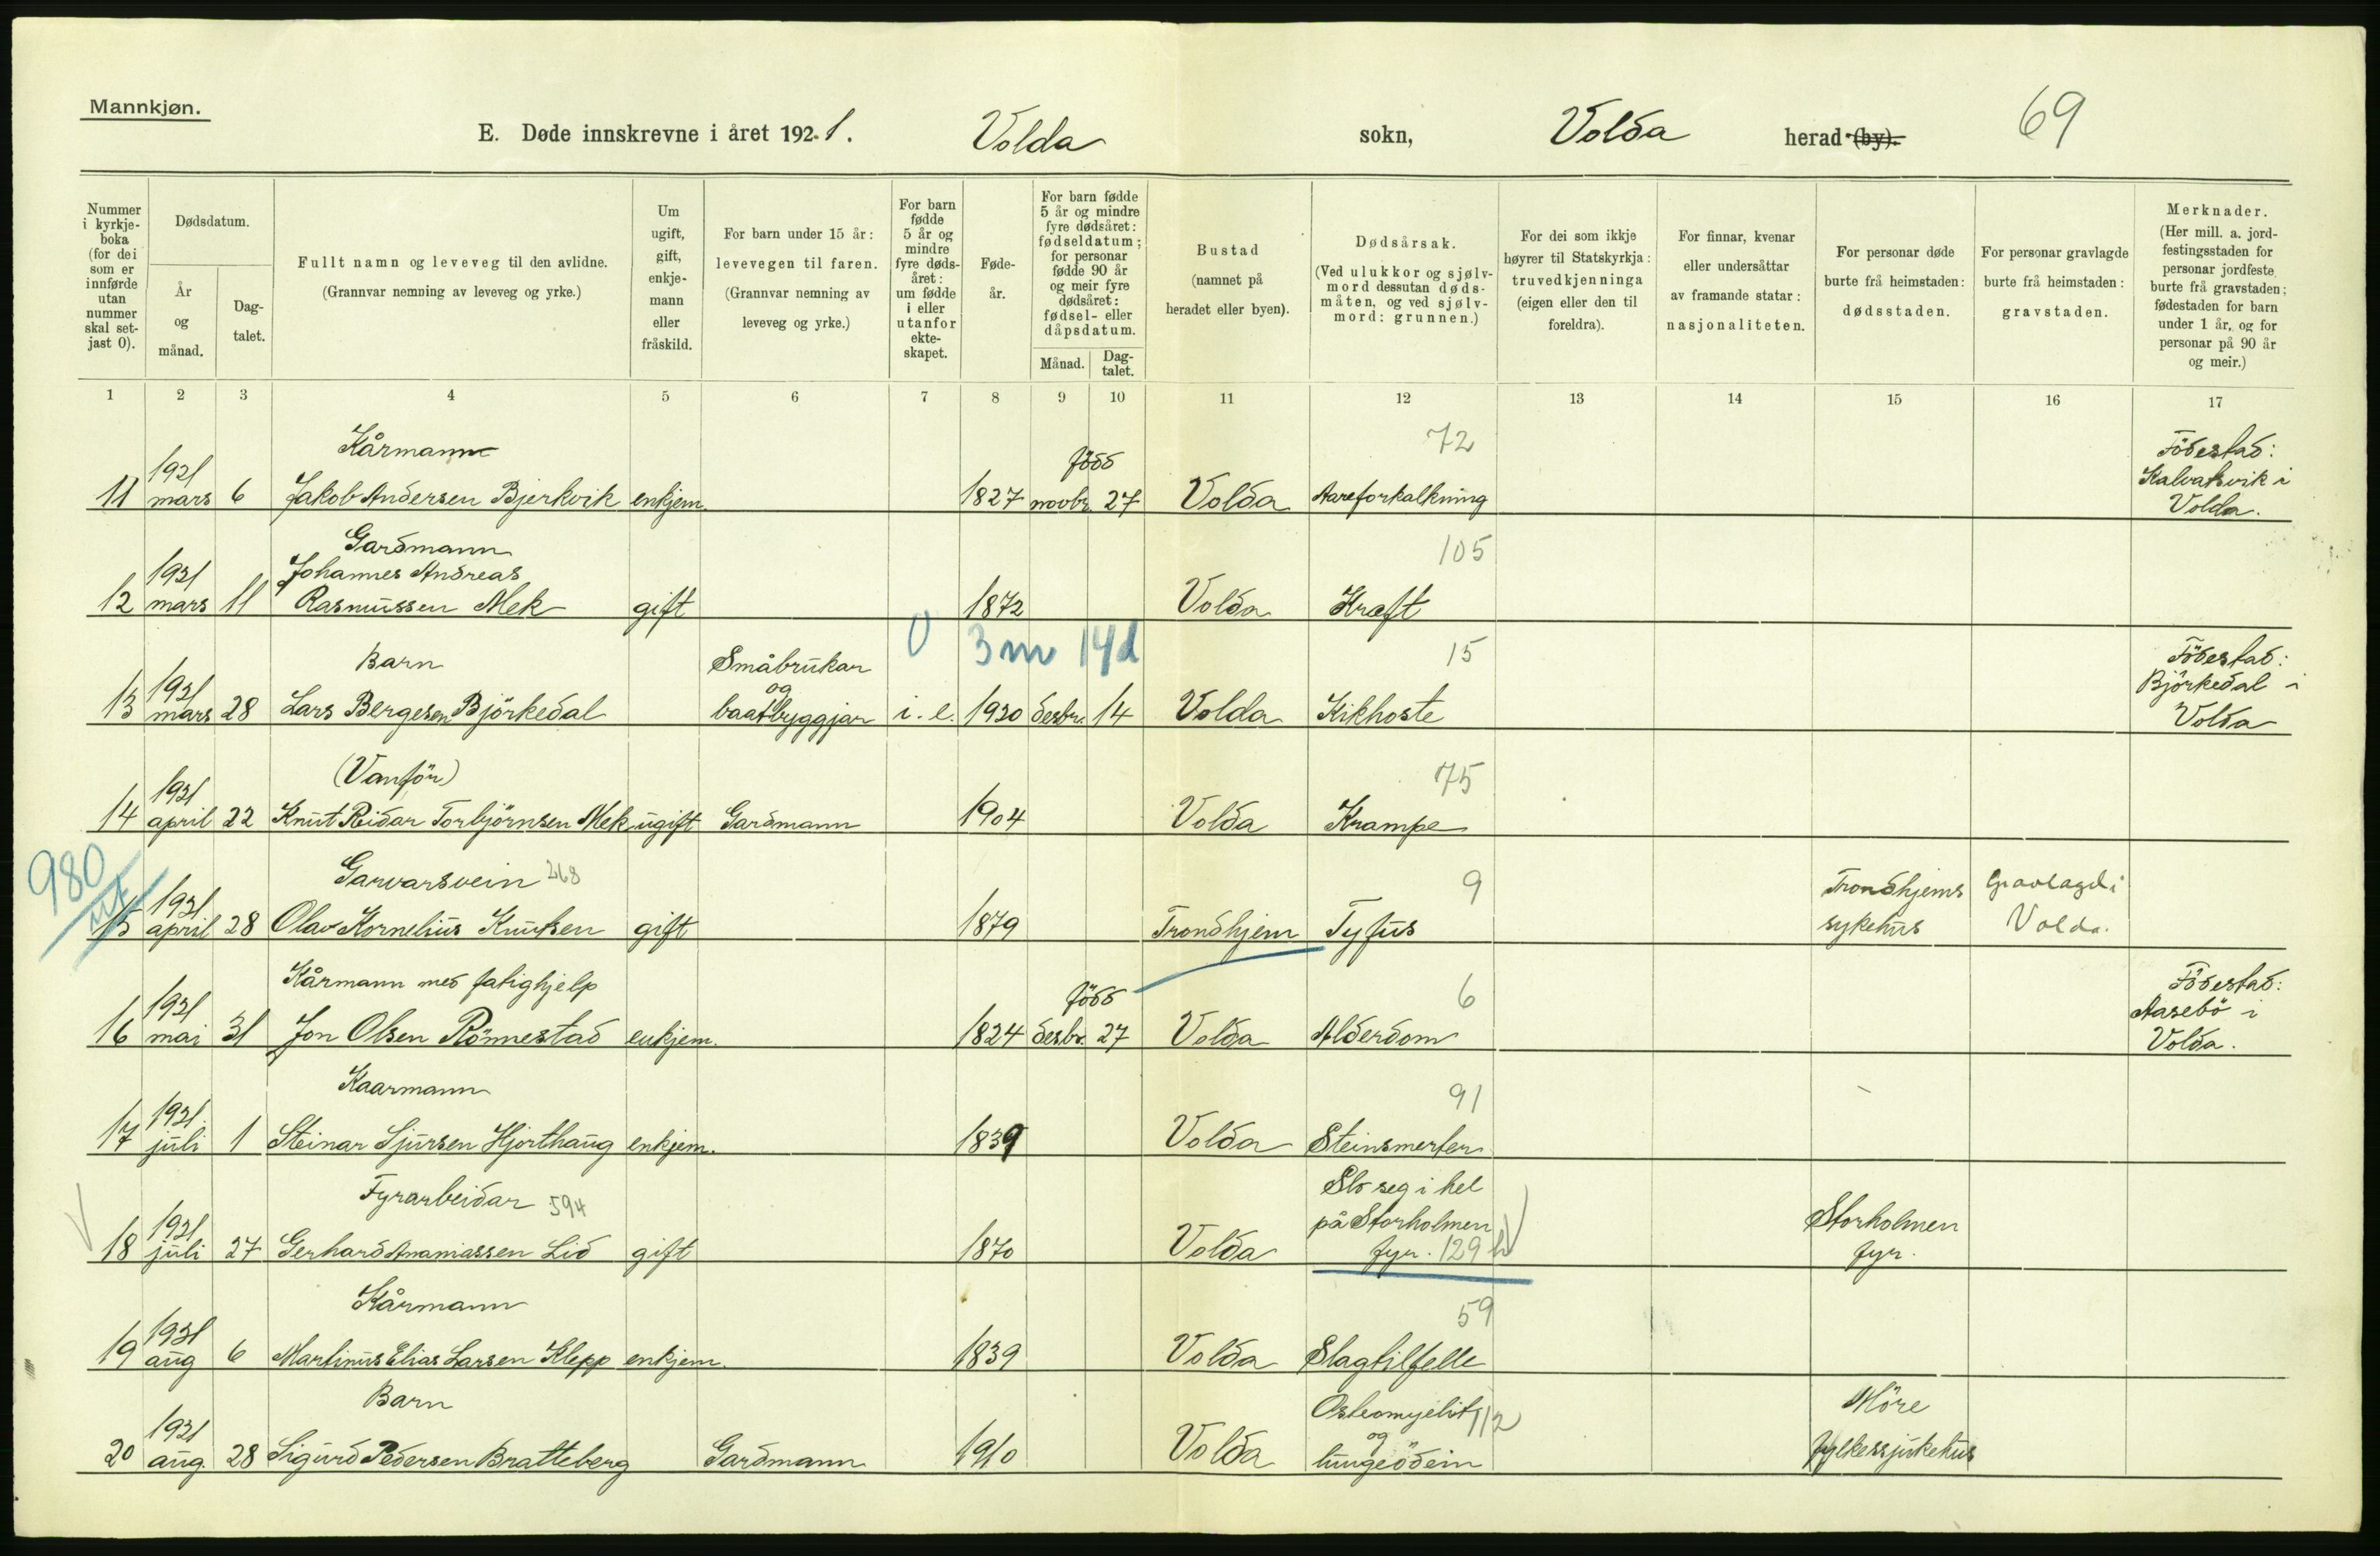 Mannkjøn.
E. Døde innskrevne i året 1921. Volda sokn, Volda herad (by). 69
Nummer i kyrkje-boka (for dei som er innførde utan nummer skal set-jast 0).
Dødsdatum.
År og månad.
Dag-talet.
Fullt namn og leveveg til den avlidne.
(Grannvar nemning av leveveg og yrke.)
Um ugift, gift, enkje-mann eller fråskild.
For barn under 15 år: levevegen til faren.
(Grannvar nemning av leveveg og yrke.)
For barn fødde 5 år og mindre fyre døds-året: um fødde i eller utanfor ekte-skapet.
Føde-år.
For barn fødde 5 år og mindre fyre dødsåret: fødseldatum; for personar fødde 90 år og meir fyre dødsåret: fødsel- eller dåpsdatum.
Månad.
Dag-talet.
Bustad
(namnet på heradet eller byen).
Dødsårsak.
(Ved ulukkor og sjølv-mord dessutan døds-måten, og ved sjølv-mord: grunnen.)
For dei som ikkje høyrer til Statskyrkja: truvedkjenninga (eigen eller den til foreldra).
For finnar, kvenar eller undersåttar av framande statar: nasjonaliteten.
For personar døde burte frå heimstaden: dødsstaden.
For personar gravlagde burte frå heimstaden: gravstaden.
Merknader.
(Her mill. a. jord-festingsstaden for personar jordfeste burte frå gravstaden; fødestaden for barn under 1 år, og for personar på 90 år og meir.)
1 2 3 4 5 6 7 8 9 10 11 12 13 14 15 16 17
Kårmann 72 Födestad:
1921 född Kalvatsvik i
11 mars 6 Jakob Andersen Bjerkvik enkjem. 1827 novbr. 27 Volda Aareforkalkning Volda.
Gardmann 105
1921 Johannes Andreas
12 mars 11 Rasmussen Mek gift 1872 Volda Kræft
0 3 m 14 d
Barn Småbrukar 15 Födestad:
1921 og Björkedal i
13 mars 28 Lars Bergesen Björkedal baatbyggjar i. e. 1920 desbr. 14 Volda Kikhoste Volda
(Vanför) 75
1921
14 april 22 Knut Reidar Torbjörnsen Mek ugift Gardmann 1904 Volda Krampe
980 Garvarsvein 268 9 Trondhjems Gravlagd i
ut 1921
15 april 28 Olav Kornelius Knutsen gift 1879 Trondhjem Tyfus sykehus Volda.
Kårmann med fatighjelp 6 Födestad:
1921 född Aasebö i
16 mai 31 Jon Olsen Rönnestad enkjem. 1824 desbr. 27 Volda Alderdom Volda.
Kaarmann 91
1921
17 juli 1 Steinar Sjursen Hjorthaug enkjem. 1839 Volda Steinsmerter
Fyrarbeidar 594 Slo seg i hel
1921 på Storholmen Storholmen
18 juli 27 Gerhard Ananiassen Lid gift 1870 Volda fyr. 129 fyr.
Kårmann 59
1921
19 aug 6 Martinus Elias Larsen Klepp enkjem. 1839 Volda Slagtilfelle
Barn Osteomyelit 112 Möre
1921 og
20 aug. 28 Sigurd Pedersen Bratteberg Gardmann 1910 Volda lungeödem fylkessjukehus